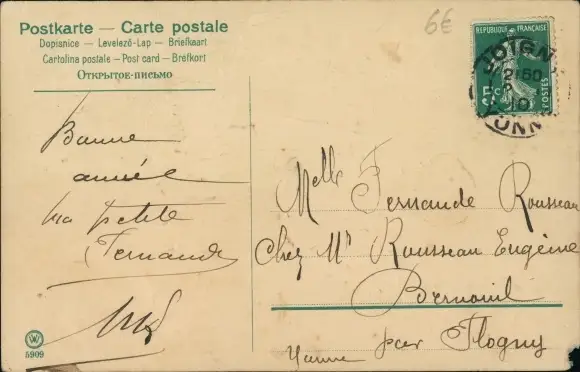 Postkarte — Carte postale
Dopisnice — Levelező-Lap — Briefkaart
Cartolina postale — Post card — Brefkort
Открытое-письмо
6€
REPUBLIQUE FRANÇAISE
5c
POSTES
JOIGN
2 50
10
YONN
Bonne
année
Ma petite
Fernande
Melle Fernande Rousseau
Chez Mr Rousseau Eugène
Bernouil
par Flogny
Yonne
5909